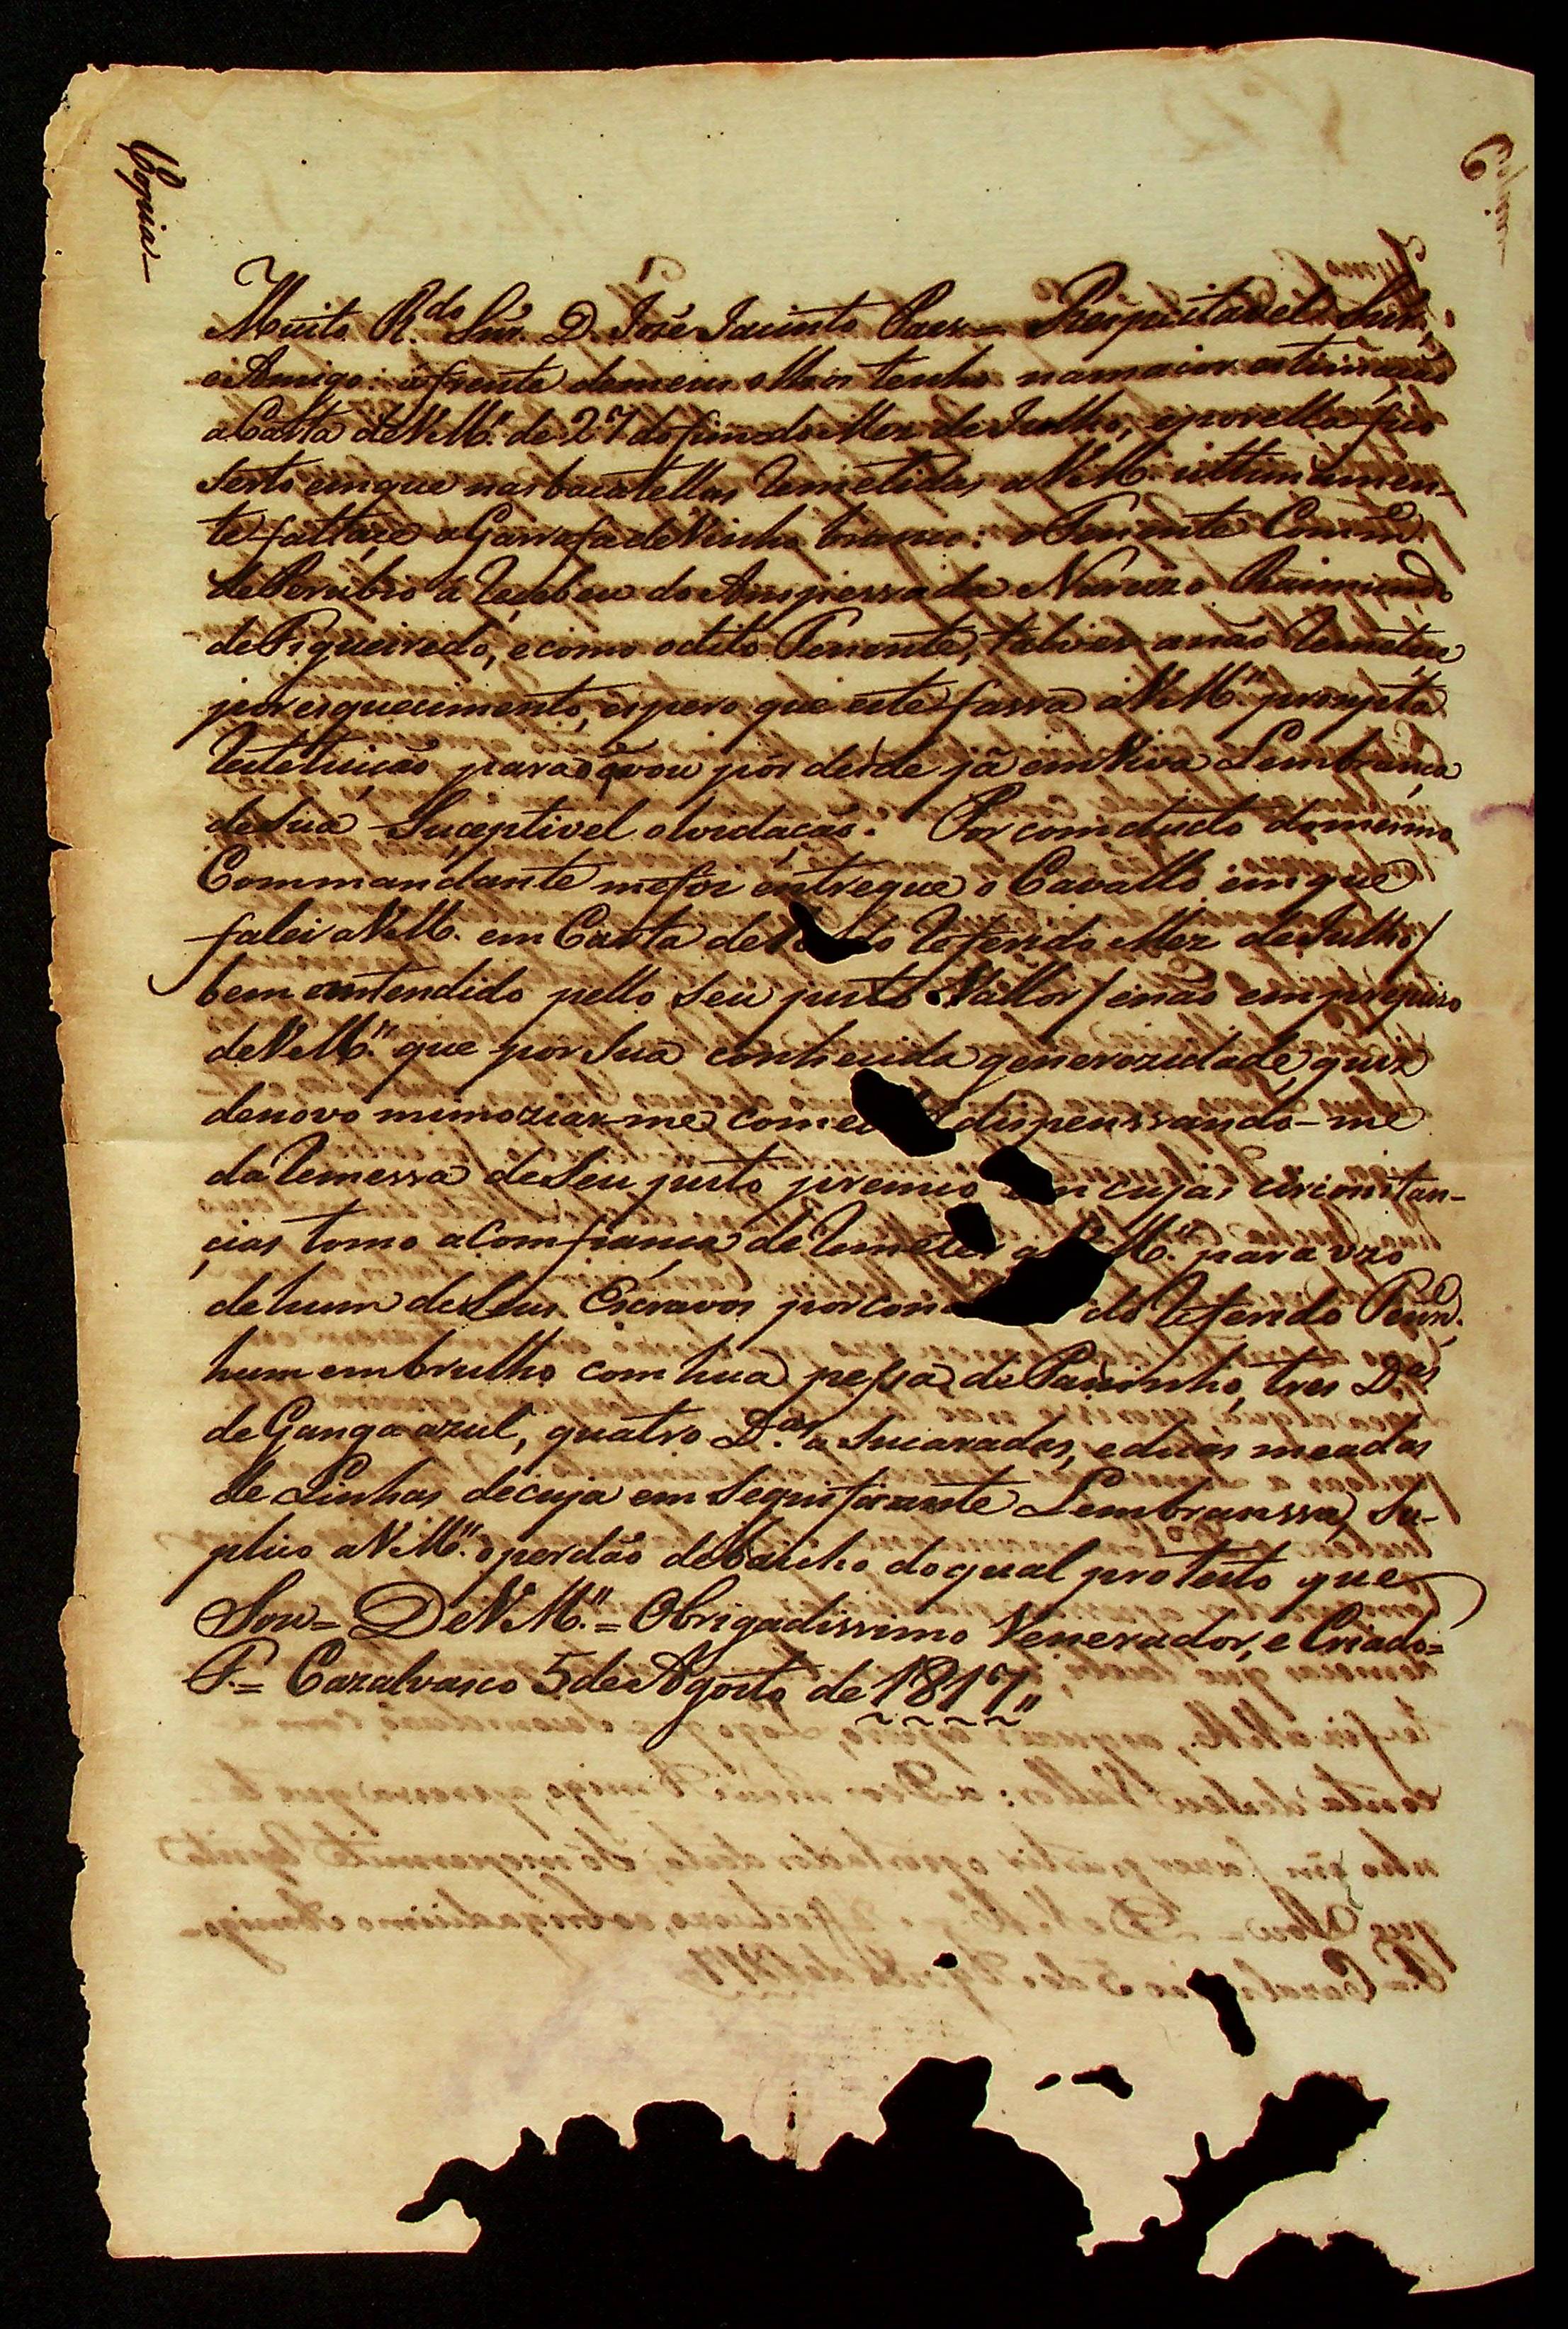 Copia_
Muito R.do Snr. D. José Jacinto Paez = Respeitavel Snr,
e Amigo: á frente demeus olhos tenho namaior estimação
aCarta deV.M.ce de 27 dofindo Mez de Julho, eporella fico
serto emque nas bacatellas remetidas aV.M. ultimamen-
te faltaçe a Garrafa de Vinho branco: o Tenente Comm.e
dePerubio a recebeu do Anspessada Narcizo Raimundo
deFigueiredo, ecomo odito Tenente, talves anão remeteu
por esquecimento, espero que este fassa aV.M.ce prompta
restetuição para o q vou pôr desde já emViva Lembrança
desua Suceptivel olvidação. Por comducto domesmo
Commandante mefoi entregue o Cavallo emque
falei aV.M. em Carta de do referido Mez deJulho/
bem entendido pello seu justo Vallor/ enão emprejuizo
deV.M.ce que por sua conhecida generozidade, quiz
denovo mimoziar-me com dispenssando-me
da remessa deSeu justo premio em cujas circonstan-
cias tomo aComfiança de remeter a V.M.ce para uzo
de hum deSeus Escravos por con do referido Tenn.e
hum embrulho com hua pessa de Paninho, tres D.as
de Ganga azul, quatro D.as aSucaradas, eduas meadas
de Linhas decuja em Segnificante Lembranssa, Su-
plico aV.M.ce o perdão debaicho doqual protesto que
Sou = DeV.M.ce = Obrigadissimo Venerador, e Criado =
P. = Cazalvasco 5 de Agosto de 1817,,